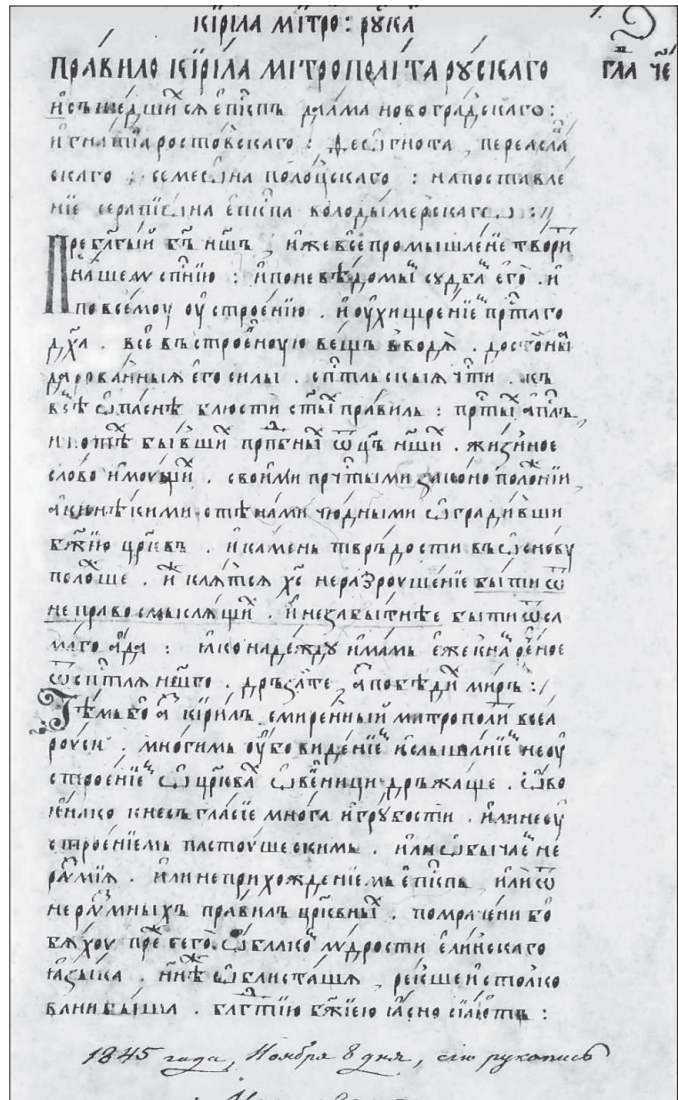 кири́ла митро : ру́ка
пра́вило кири́ла митрополі́та ру́скаго гла҃ че
и҆съше́дшиⷯсѧ е҆пⷭ҇пъ далма новогра́дскагѡ :
и҆гна́тиꙗ росто́вскаго : феѡ҆гно́та , переасла́
скаго : семеѡ҆на поло́цскаго : на поставле́
ніе серапиѡ҆на е҆пⷭ҇па володы́мерскагѡ :
Пребл҃гы́й бг҃ъ нш҃ъ , и҆же всѐ промышле́ніе твори́ⷮ
на́шемꙋ сп҃нію : и҆ по невѣ́домыⷨ сꙋдба́ⷨ е҆го̀ . и҆
по все́моу оу҆строе́нію . и҆ оу҆хищре́ніеⷨ прⷭ҇та́го
дх҃а . всѐ въ строе́ноую ве́щь вводѧ̀ . досто́ины
дарова́нныѧ е҆го̀ си́лы . ст҃и́тльскыѧ чⷭ҇ти . къ
всѣ́ ѡ҆па́снѣ блюстѝ ст҃ы́ⷯ пра́вилъ : прⷭ҇ты́ⷯ а҆пⷭ҇лъ
и по тѣ́ⷯ бы́вшиⷯ прпⷣбныⷯ ѿц҃ъ на́шиⷯ . жи́зньное
сло́во и҆моу́щиⷯ . свои́ми прчⷭ҇тыми законо положе́нии
а҆ки нѣ́кими стѣна́ми чю́дными ѡ҆гради́вши
бж҃ію цр҃ковь . и҆ ка́мень твръ́дости въ ѡ҆сно́вꙋ
поло́жше . и҆ⷨ клѧ́тсѧ хс҃ неразроуше́ніе бы́ти ѿ
не право смы́слѧщиⷯ . и҆ незабы́тнѣе бы́ти ѿ са
маго а҆́да : ꙗ҆ко наде́ждꙋ и҆́мамь е҆́же к на́ⷨ рече́ное
ѿ сп҃си́тлѧ на́шего . дръза́йте , а҆́зъ побѣди́ⷯ ми́ръ :
Тѣ́мь бо а҆́зъ кири́лъ смире́нный митрополи́ⷮ всеа̀
роуси́ . мно́гимь оу҆́бо ви́дѣніеⷨ и҆ слы́шаніеⷨ неоу
строе́ніеⷨ ѡ҆ цр҃квахъ ѡ҆ве́ници дръжа́ще . ѡ҆́во
и҆ни́ако к несъгла́сіе мно́га и҆ гру́бости . и҆лѝ неоу҆
строе́ніемъ пасто́ушескимь . и҆лѝ ѡ҆бы́чаеⷨ не
ра́зꙋмїѧ . и҆лѝ неприхожде́ніемь е҆пⷭ҇пь и҆лѝ ѿ
нера́зꙋмныхъ пра́вилъ цр҃ко́вныⷯ . помраче́ни бо̀
бѧ́хоу пре́ⷤ сего̀ . ѡ҆́блакоⷨ мꙋ́дрости е҆́линскаго
ꙗ҆зы́ка . нн҃ѣ ѡ҆блиста́шѧ , ре́кше и҆столко
вани бы́ша . блгⷣтїю бж҃їею ꙗ҆́сно сїа́ють :
1845 года, Ноября 8 дня, сію рукопись